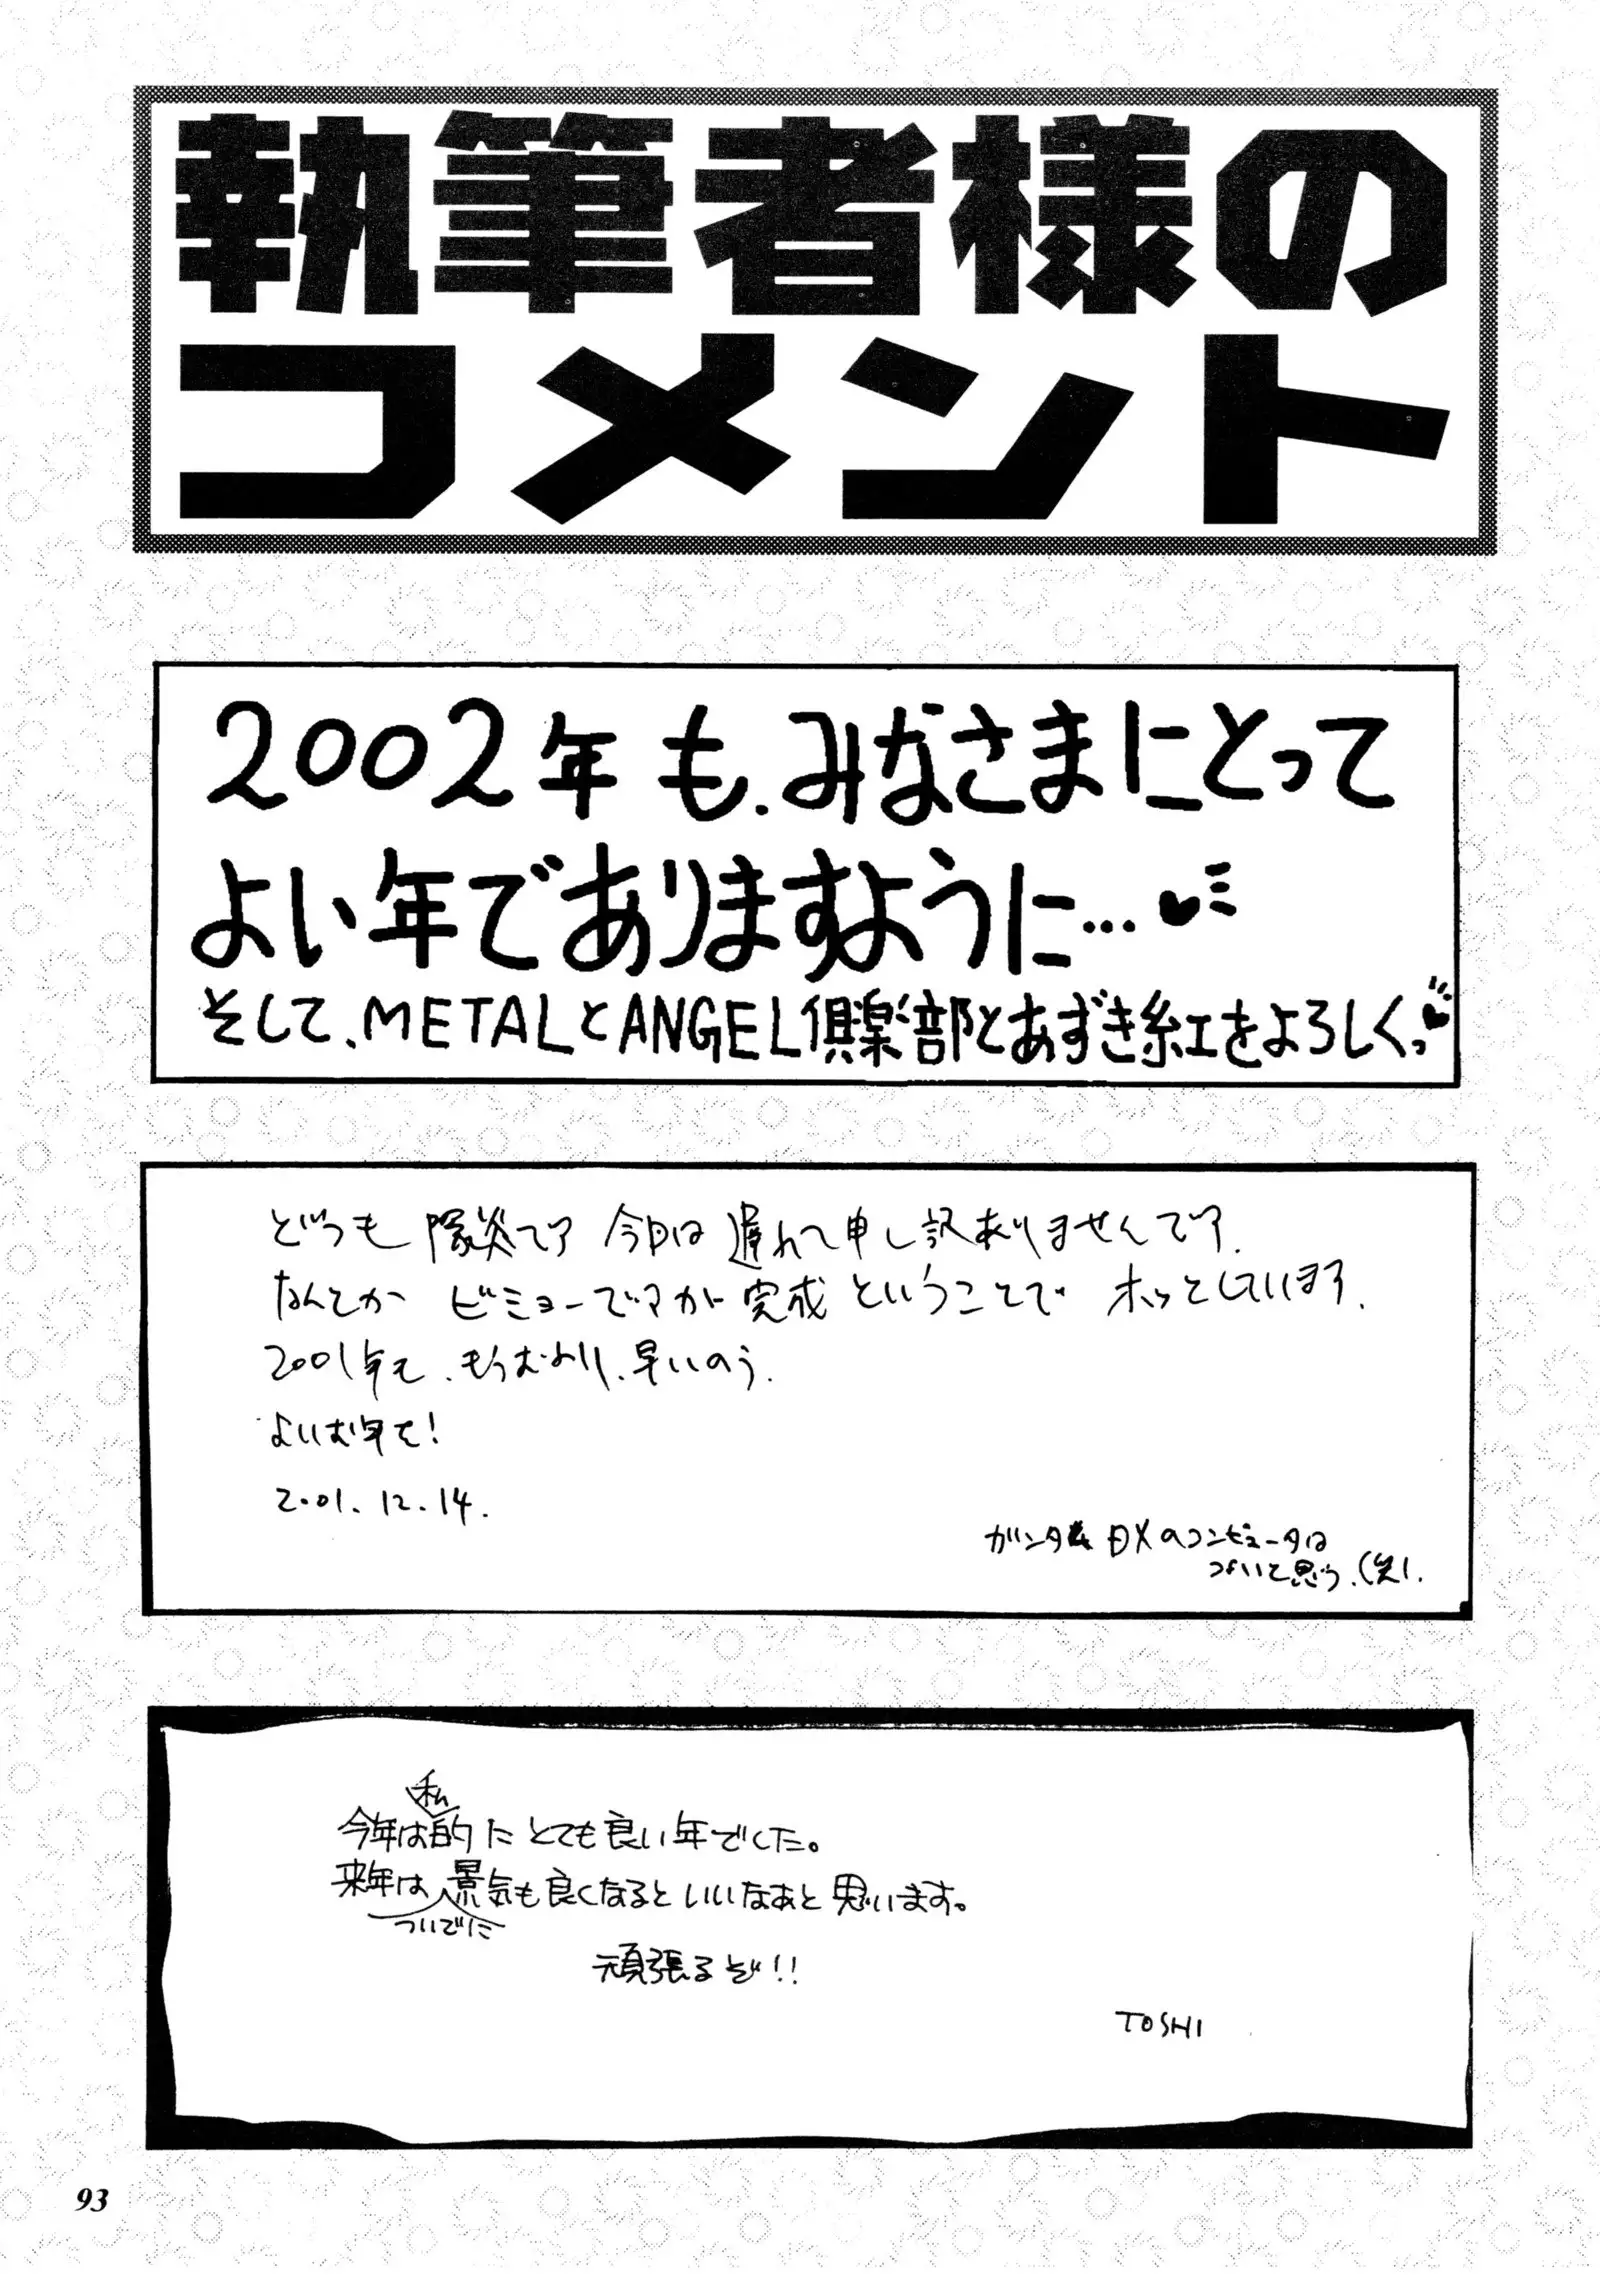 執筆者様の
コメント
2002年も、みなさまにとって
よい年でありますように…♥
そして、METALとANGEL倶楽部とあずき紅をよろしくっ♥
どうも 塚炎です 今日は遅れて申し訳ありませんです.
なんとか ビミョーですが完成ということで ホッとしています.
2001年も、もうおわり、早いのう.
よいお年を!
2001. 12. 14.
ガンダム DXのコンピュータは
つよいと思う.(笑).
私
今年は的にとても良い年でした。
来年は景気も良くなるといいなあと思います。
ついでに
頑張るぞ!!
TOSHI
93